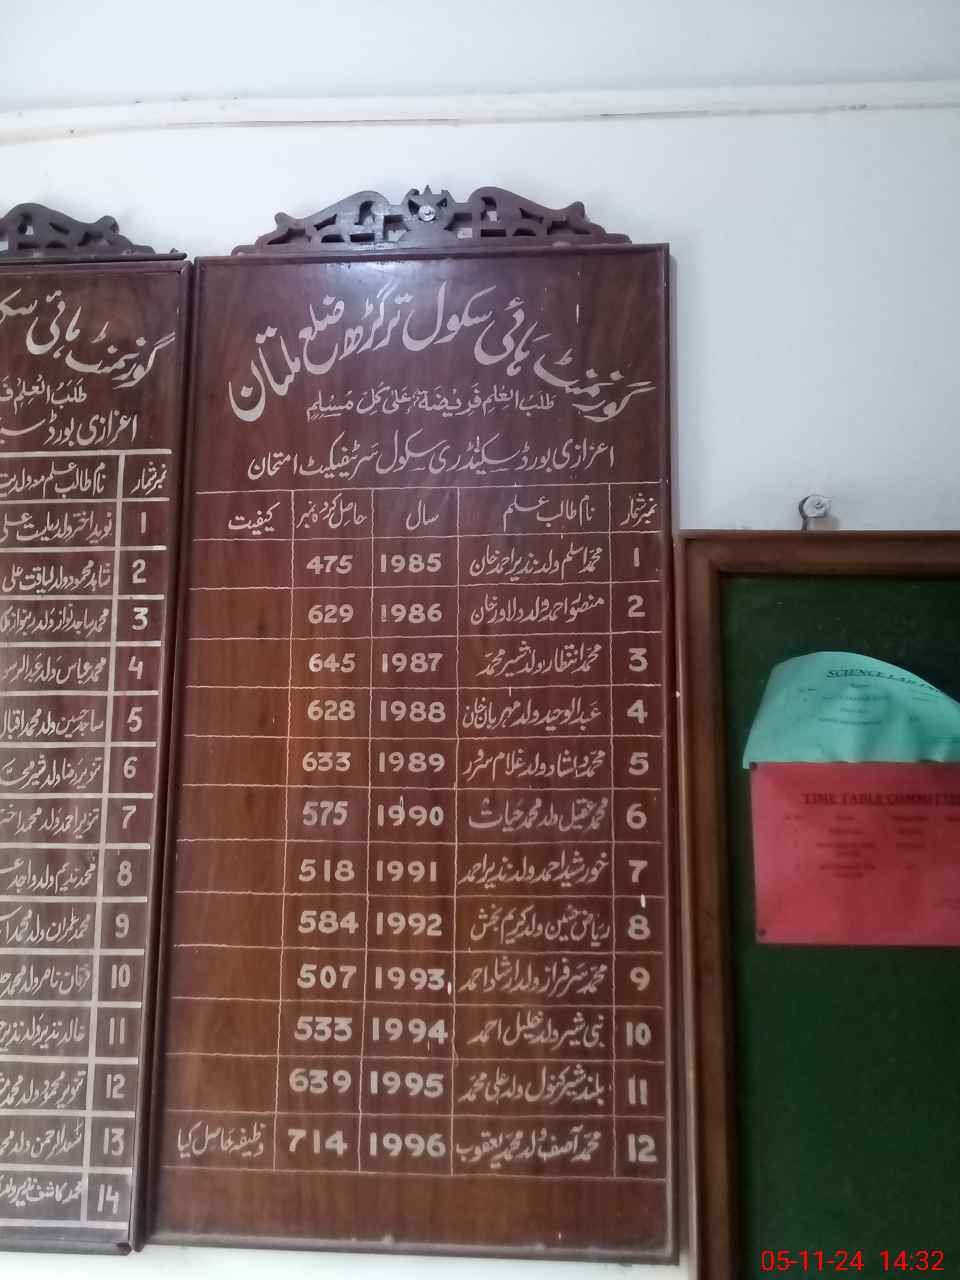 گورنمنٹ ہائی سکول ترگڑھ ضلع ملتان
طَلَبُ العِلمِ فَرِیْضَۃٌ عَلیٰ کُلِّ مُسْلِمٍ
اعزازی بورڈ سیکنڈری سکول سرٹیفیکیٹ امتحان
نمبرشمار نام طالب علم سال حاصل کردہ نمبر کیفیت
1 محمد اسلم ولد نذیر احمد خان 1985 475
2 منصور احمد ولد دلاور خان 1986 629
3 محمد انتظار ولد شیر محمد 1987 645
4 عبدالوحید ولد مہربان خان 1988 628
5 محمد دلشاد ولد غلام سرور 1989 633
6 محمد عقیل ولد محمد حیات 1990 575
7 خورشید احمد ولد نذیر احمد 1991 518
8 ریاض حسین ولد کریم بخش 1992 584
9 محمد سرفراز ولد ارشاد احمد 1993 507
10 نبی شیر ولد خلیل احمد 1994 533
11 بلند شیر کنول ولد علی محمد 1995 639
12 محمد آصف ولد محمد یعقوب 1996 714 وظیفہ حاصل کیا
گورنمنٹ ہائی
طَلَبُ العِلمِ
اعزازی بورڈ
نمبرشمار نام طالب علم معہ ولدیت
1 نوید اختر ولد ریاست علی
2 شاہد محمود ولد لیاقت علی
3 محمد ساجد نواز ولد ربنواز
4 محمد عباس ولد
5 ساجد حسین ولد محمد اقبال
6 تنویر رضا ولد شیر
7 تنویر احمد ولد محمد
8 محمد ندیم ولد
9 محمد عمران ولد محمد
10 ولد محمد
11 خالد نذیر ولد نذیر
12 تنویر محمود ولد محمد
13 سعد الرحمن ولد
14 محمد کاشف نذیر ولد
SCIENCE LAB
TIME TABLE COMMITTE
05-11-24 14:32